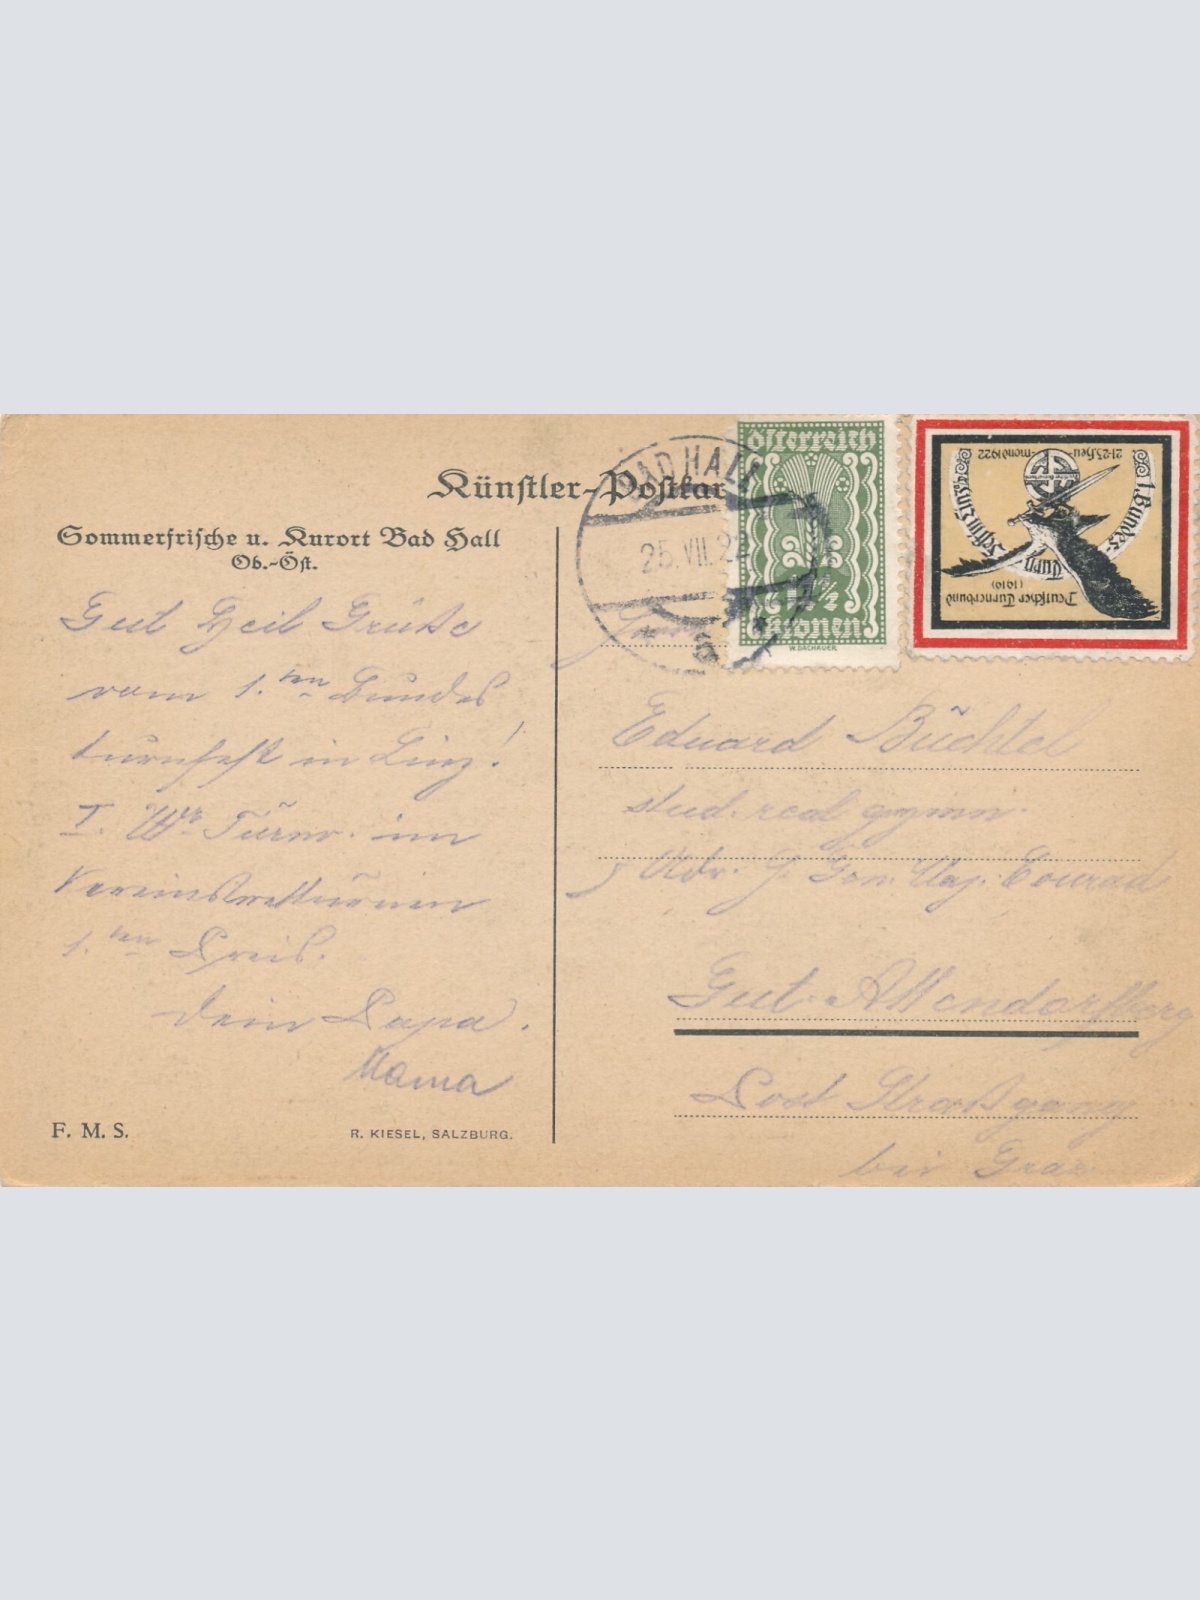 Künstler-Postkar
Sommerfrische u. Kurort Bad Hall
Ob.-Öst.
Gut Heil Grüße
vom 1. ten Bundes
turnfest in Linz!
I. Wr Turnv. im
Vereinswetturnen
1. ten Preis.
Dein Papa.
Mama
F. M. S.
R. KIESEL, SALZBURG.
BAD HALL
25.VII.22
österreich
7½
kronen
W. DACHAUER
1. Bundes-
Turn
fest in Linz
21-25. Heu-
mond 1922
Deutscher Turnerbund
(1919)
Eduard Büchtel
stud. real gymn.
Adr. J. Gen. Maj. Conrad
Gut Attendorfberg
Post Straßgang
bei Graz